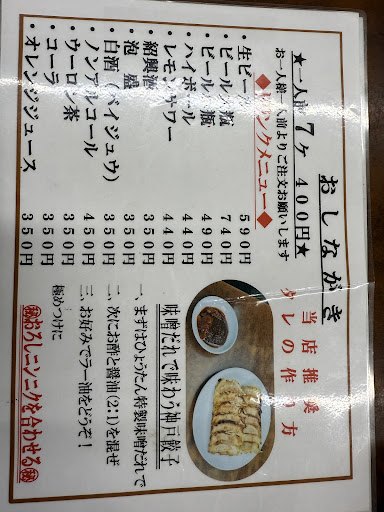 おしながき
★一人前 7ケ 400円★
お一人様一人前よりご注文お願いします
◆ドリンクメニュー◆
・生ビール 590円
・ビール大瓶 740円
・ビール 瓶 490円
・ハイボール 440円
・レモンサワー 440円
・紹興酒 350円
・泡盛 350円
・白酒(バイジュウ) 350円
・ノンアルコール 450円
・ウーロン茶 350円
・コーラ 350円
・オレンジジュース 350円
当店推奨
タレの作り方
味噌だれで味わう神戸餃子
一、まずはひょうたん特製味噌だれで
二、次にお酢と醤油(2:1)を混ぜ
三、お好みでラー油をどうぞ!
極めつけに
㊙おろしニンニクを合わせる㊙